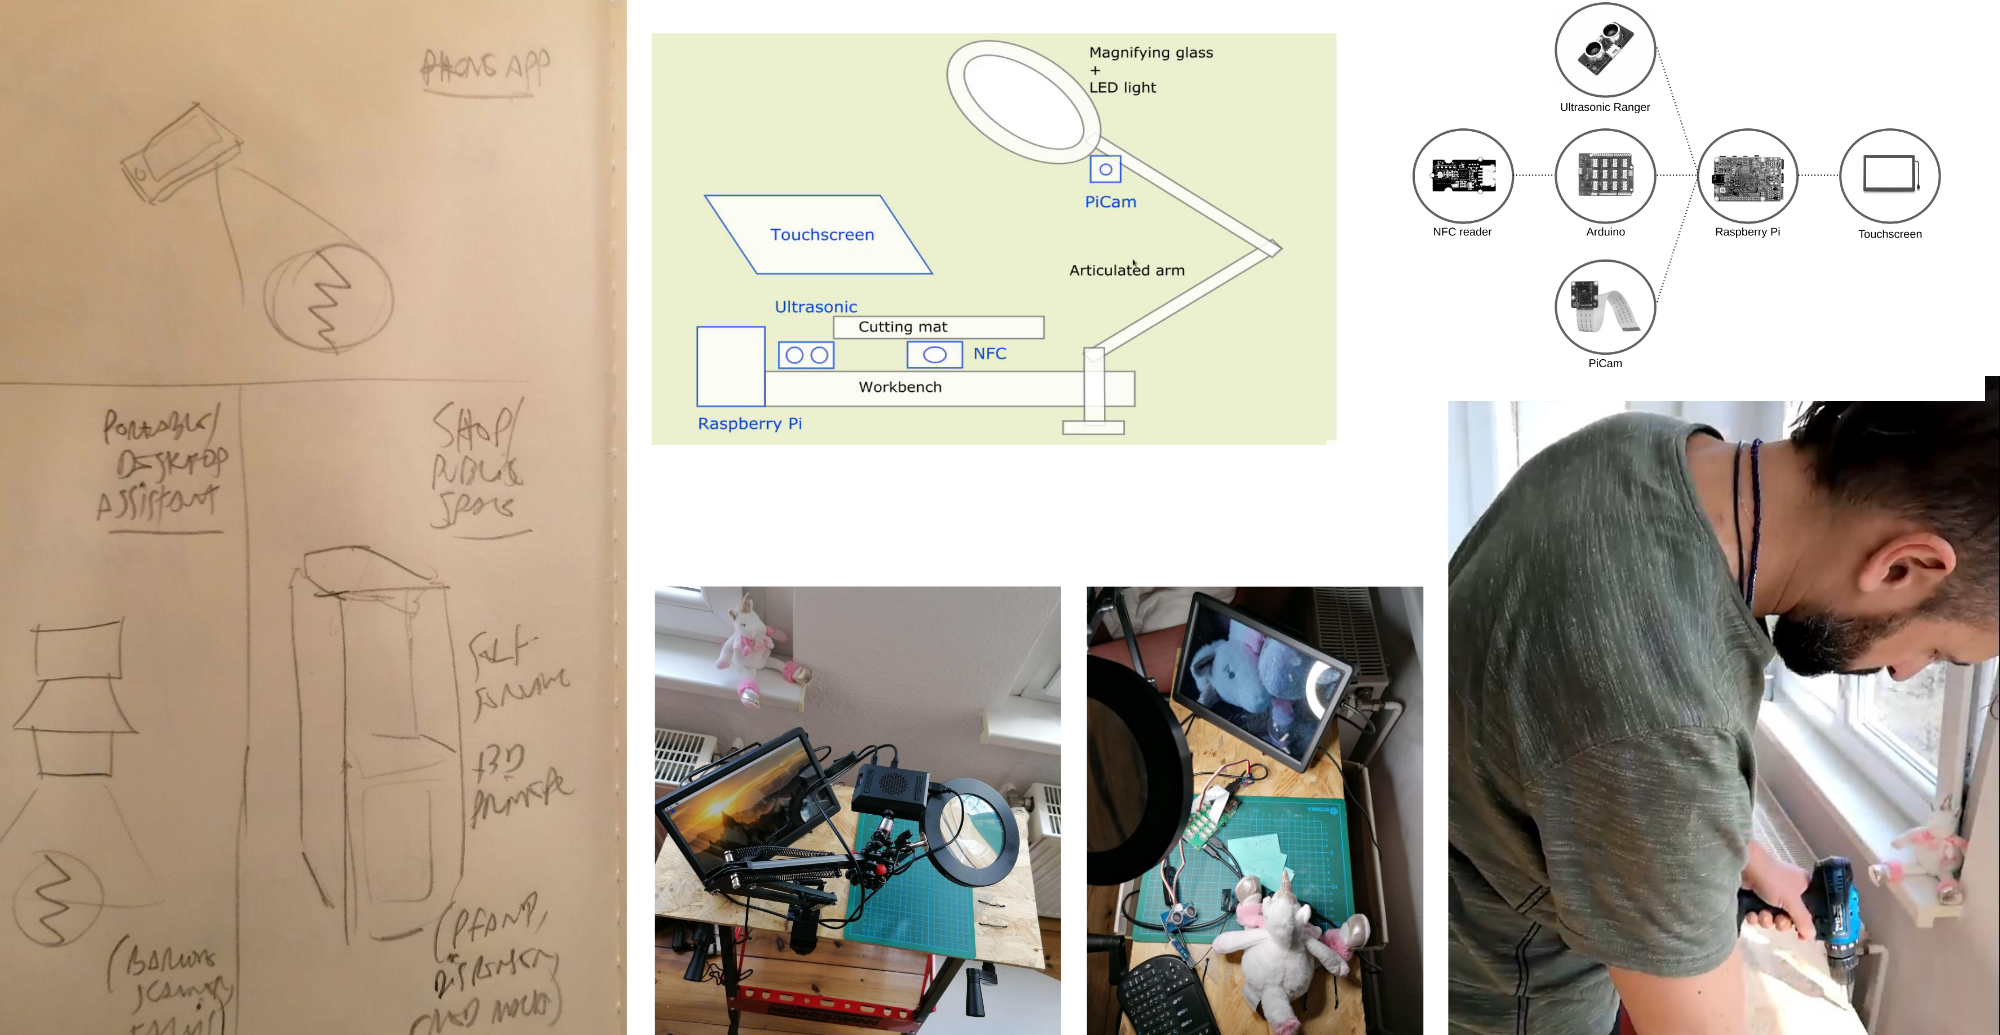 PHONE APP
PORTABLE/
DESKTOP
ASSISTANT
SHOP/
PUBLIC
SPACE
SELF
+3D
(PFAND,
(BARCODE
SCANNER
Magnifying glass
+
LED light
PiCam
Touchscreen
Articulated arm
Ultrasonic
Cutting mat
NFC
Workbench
Raspberry Pi
Ultrasonic Ranger
NFC reader
Arduino
Raspberry Pi
Touchscreen
PiCam
MANNESMANN